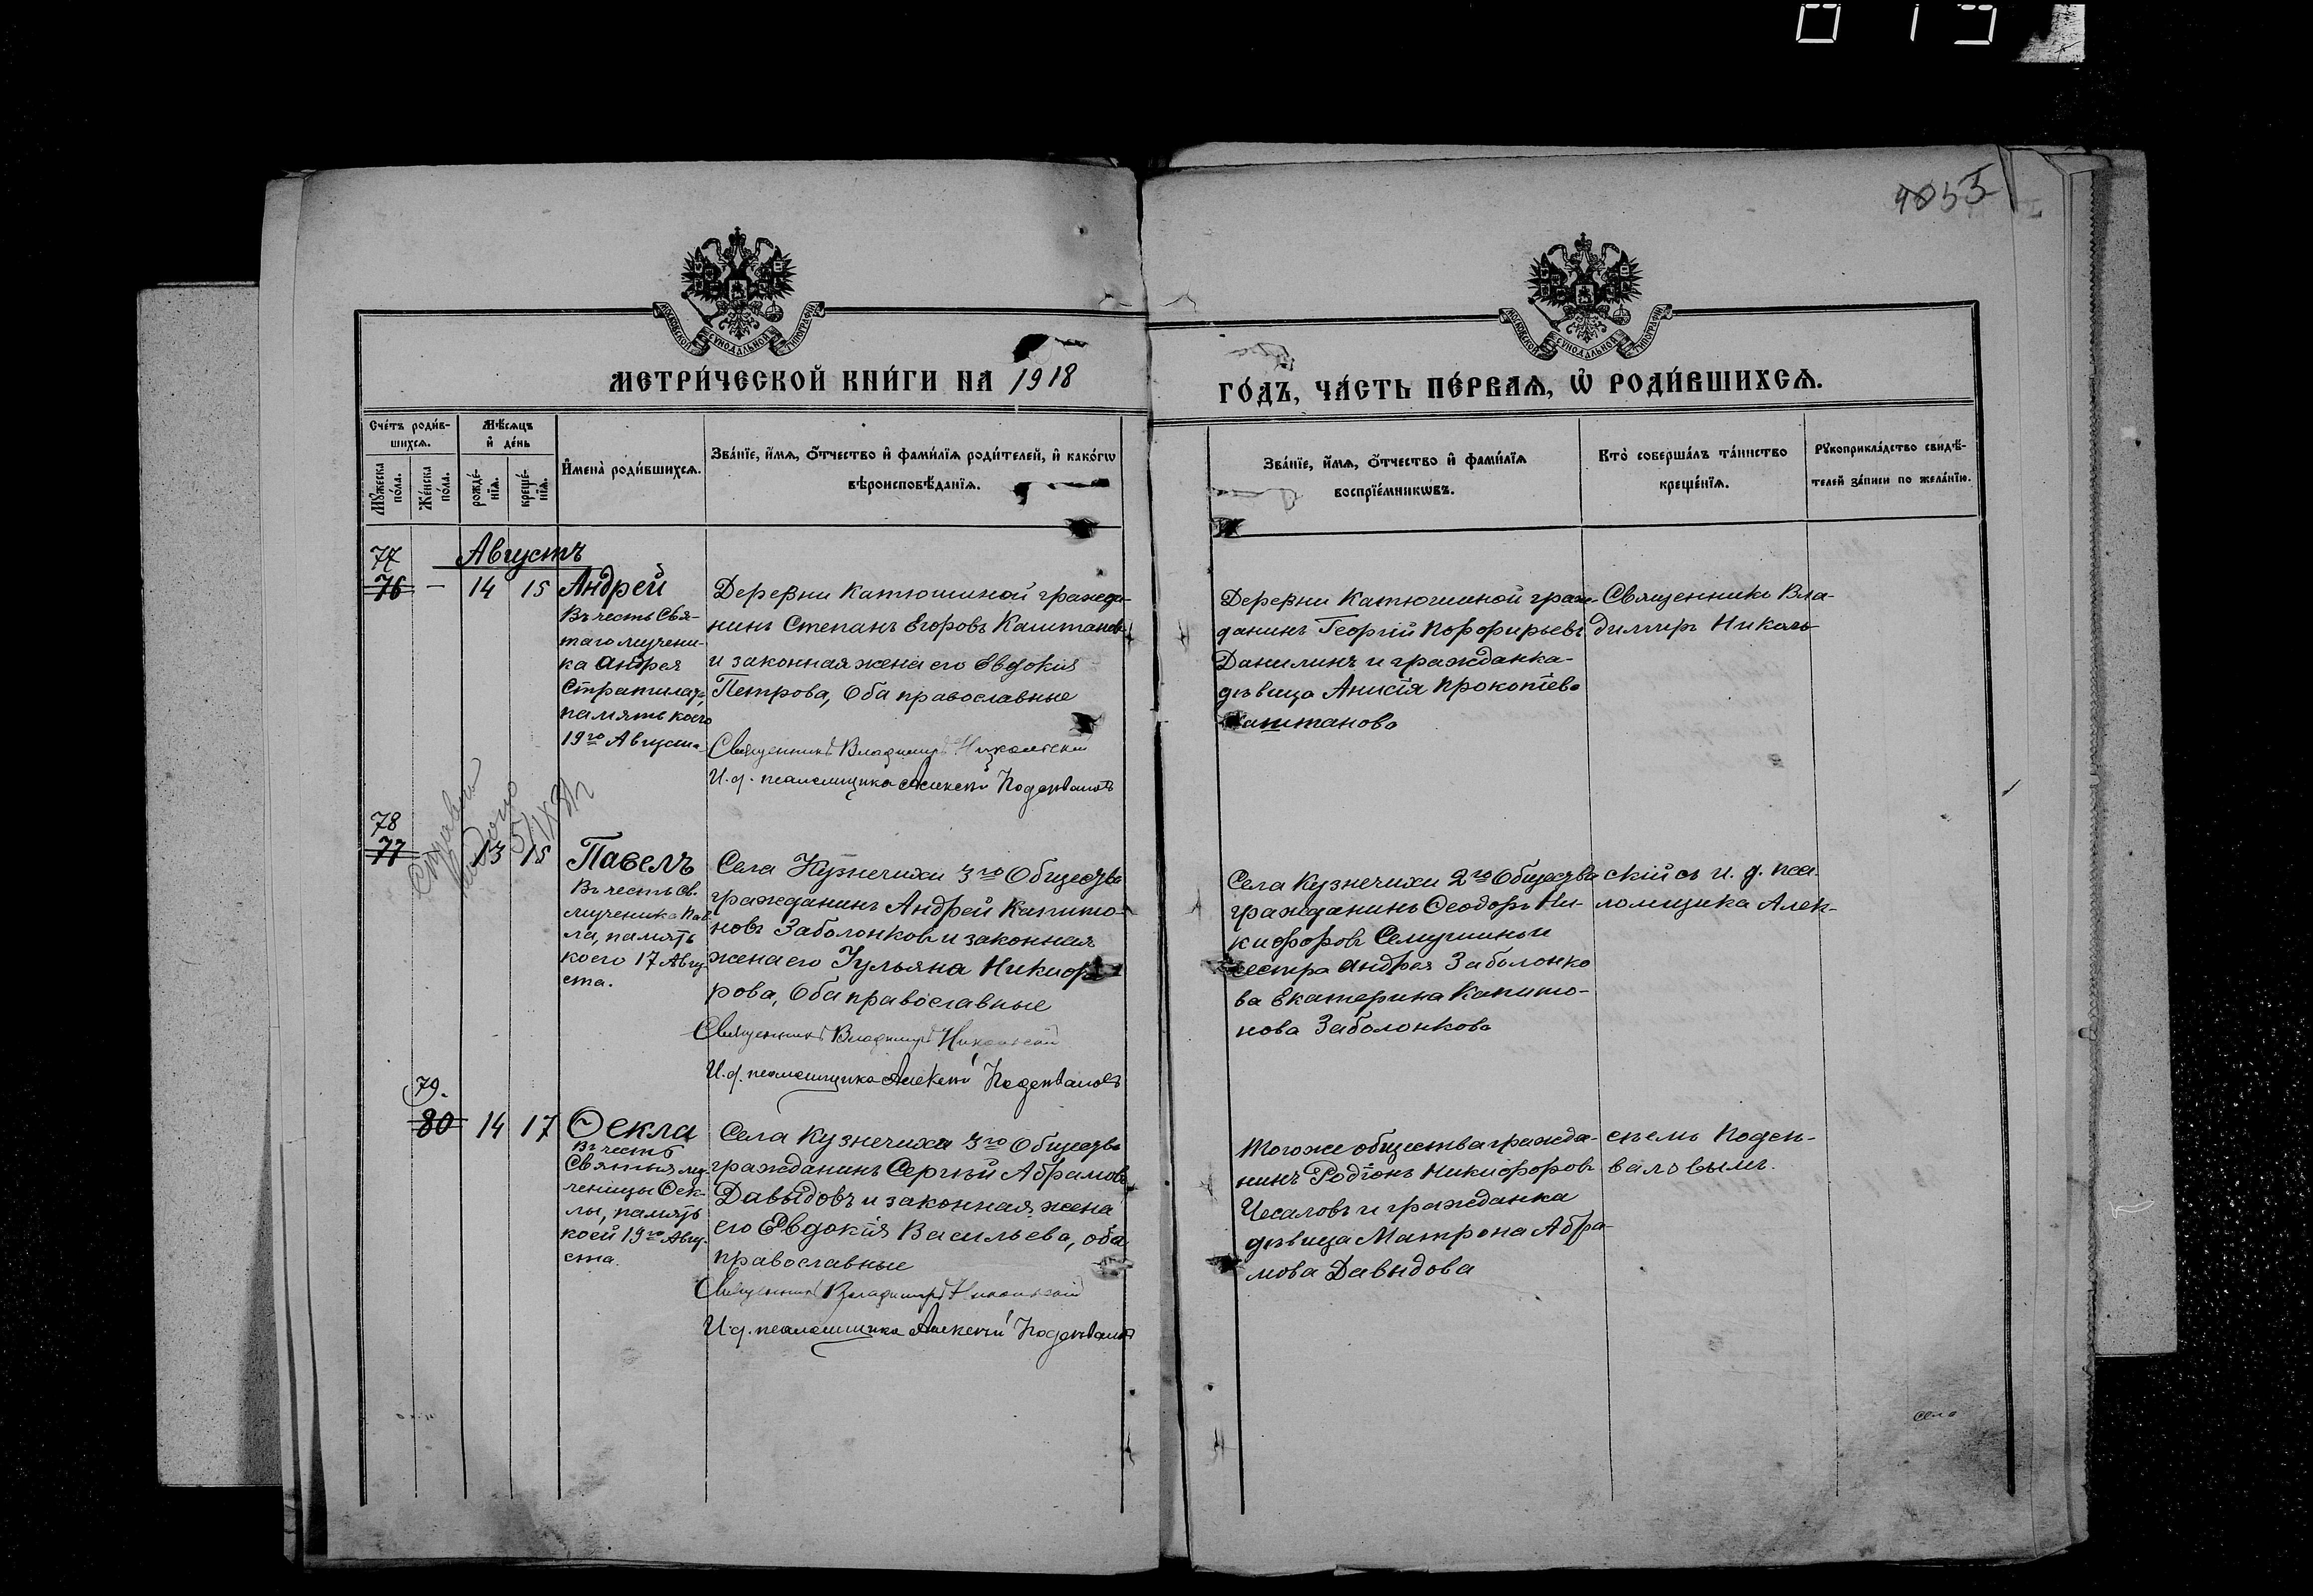 4055
МОСКОВСКОЙ СѴНОДАЛЬНОЙ ТИПОГРАФІИ
МОСКОВСКОЙ СѴНОДАЛЬНОЙ ТИПОГРАФІИ
МЕТРИ́ЧЕСКОЙ КНИ́ГИ НА 1918
ГО́ДЪ, ЧА́СТЬ ПЕ́РВАѦ, Ѡ҆ РОДИ́ВШИХСѦ.
Сче́тъ роди́в-
шихсѧ.
Мѣ́сѧцъ
и҆ де́нь
Мꙋ́жеска
по́ла.
Же́нска
по́ла.
рожде́-
нїѧ.
креще́-
нїѧ.
И҆мена̀ роди́вшихсѧ.
Зва́нїе, и҆́мѧ, ѻ҆́тчество и҆ фами́лїѧ роди́телей, и҆ како́гѡ
вѣроисповѣ́данїѧ.
Зва́нїе, и҆́мѧ, ѻ҆́тчество и҆ фами́лїѧ
воспрїе́мникѡвъ.
Кто̀ соверша́лъ та́инство
креще́нїѧ.
Рꙋкоприкла́дство свидѣ́-
телей за́писи по жела́нїю.
Августъ
77
76 — 14 15 Андрей
Въ честь Свя-
таго мучени-
ка Андрея
Стратилата,
память коего
19го Августа
Деревни Катюшиной гражда-
нинъ Степанъ Егоровъ Каштановъ
и законная жена его Евдокія
Петрова, Оба православные
Священникъ Владимиръ Никольский
И.д. псаломщика Алексей Поденвалов
Деревни Катюшиной граж-
данинъ Георгій Порфирьевъ
Данилинъ и гражданка-
дѣвица Анисія Прокопіева
Каштанова
Священникъ Вла-
димиръ Николь-
78
77 13 15 Павелъ
Въ честь св.
мученика Пав-
ла, память
коего 17 Авгу-
ста.
Села Кузнечихи 3го Общества
гражданинъ Андрей Капито-
новъ Заболонковъ и законная
жена его Iульяна Никифо-
рова, Оба православные
Священникъ Владимиръ Никольский
И.д. псаломщика Алексей Поденвалов
Села Кузнечихи 2го Общества
гражданинъ Ѳеодоръ Ни-
кифоровъ Семушинъ и
сестра Андрея Заболонко
ва Екатерина Капито-
нова Заболонкова
скій съ и. д. пса
ломщика Алек-
79.
80 14 17 Ѳекла
Въ честь
Святыя му-
ченицы Ѳек-
лы, память
коей 19го Авгу-
ста.
Села Кузнечиха 3го Общества
гражданинъ Сергѣй Абрамовъ
Давыдовъ и законная жена
его Евдокія Васильева, оба
православные
Священникъ Владимиръ Никольский
И.д. псаломщика Алексей Поденвалов
Того же общества гражда-
нинъ Родіонъ Никифоровъ
Чесаловъ и гражданка
дѣвица Матрона Абра-
мова Давыдова
сѣемъ Поден-
валовымъ.